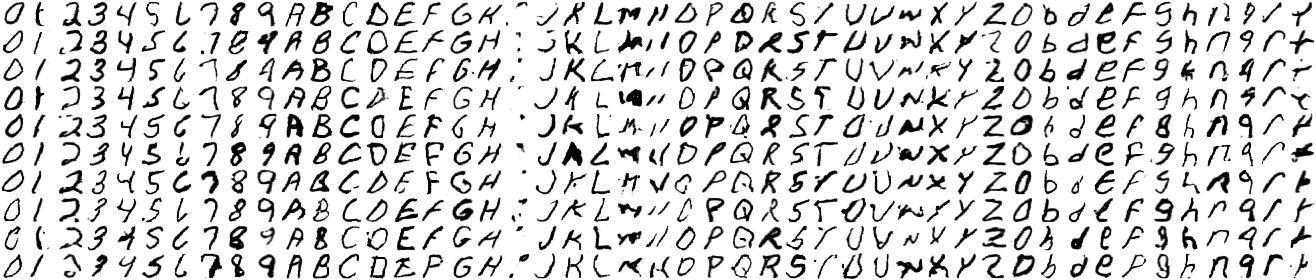 0 1 2 3 4 5 6 7 8 9 A B C D E F G H J K L M N O P Q R S T U V W X Y Z O b d e F g h n q r t
0 1 2 3 4 5 6 7 8 9 A B C D E F G H J K L M N O P Q R S T U V W X Y Z O b d e F g h n q r t
0 1 2 3 4 5 6 7 8 9 A B C D E F G H J K L M N O P Q R S T U V W X Y Z O b d e F g h n q r t
0 1 2 3 4 5 6 7 8 9 A B C D E F G H J K L M N O P Q R S T U V W X Y Z O b d e F g h n q r t
0 1 2 3 4 5 6 7 8 9 A B C D E F G H J K L M N O P Q R S T U V W X Y Z O b d e F g h n q r t
0 1 2 3 4 5 6 7 8 9 A B C D E F G H J K L M N O P Q R S T U V W X Y Z O b d e F g h n q r t
0 1 2 3 4 5 6 7 8 9 A B C D E F G H J K L M N O P Q R S T U V W X Y Z O b d e F g h n q r t
0 1 2 3 4 5 6 7 8 9 A B C D E F G H J K L M N O P Q R S T U V W X Y Z O b d e F g h n q r t
0 1 2 3 4 5 6 7 8 9 A B C D E F G H J K L M N O P Q R S T U V W X Y Z O b d e F g h n q r t
0 1 2 3 4 5 6 7 8 9 A B C D E F G H J K L M N O P Q R S T U V W X Y Z O b d e F g h n q r t